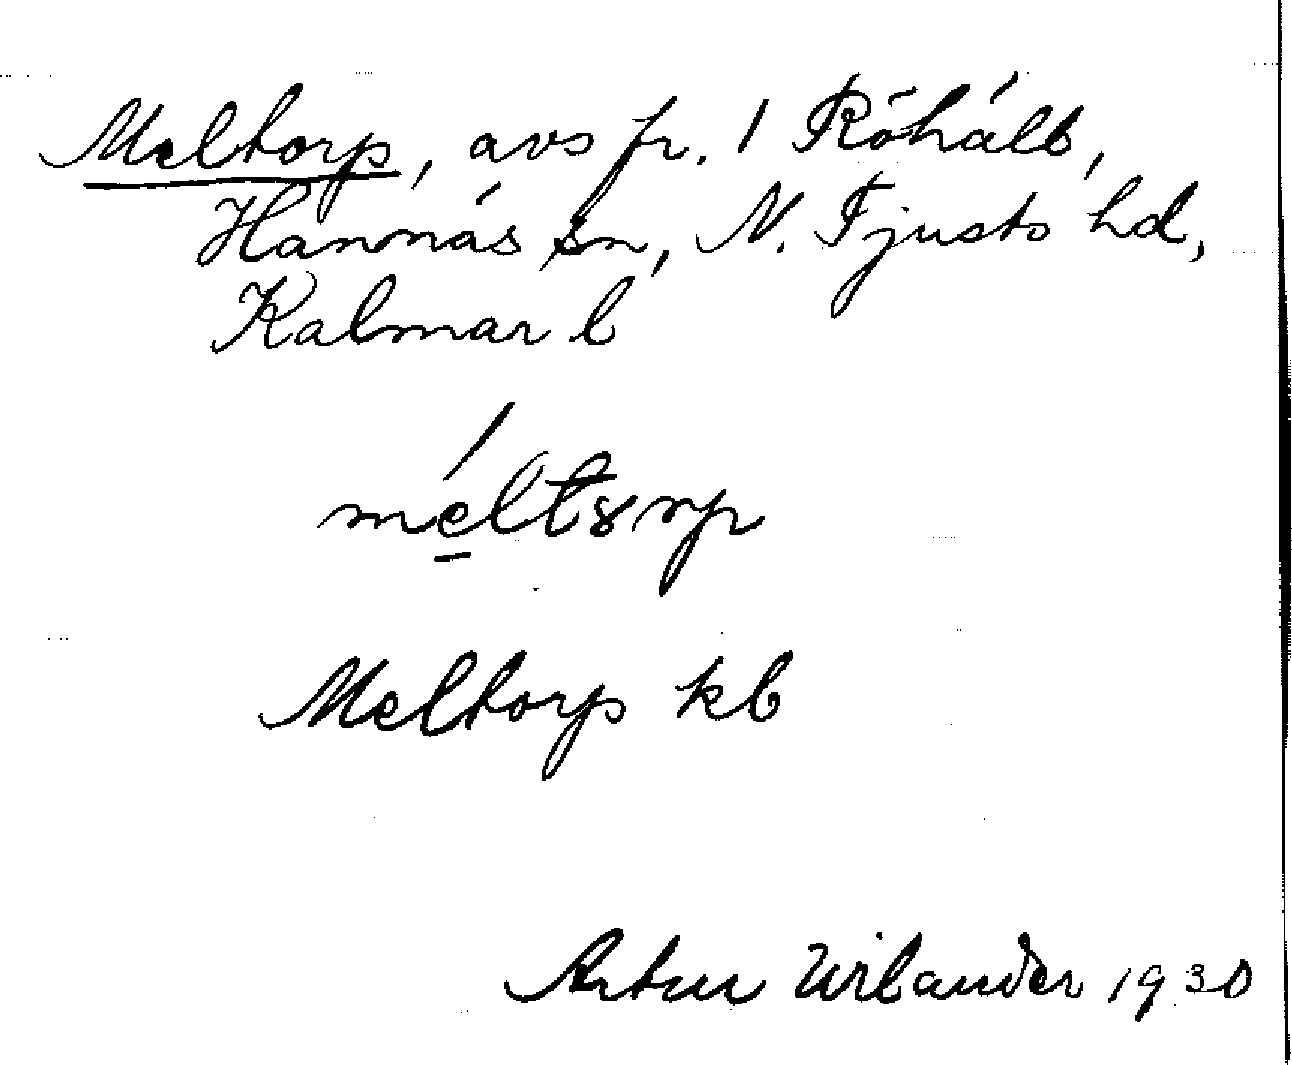 Meltorp, avs fr. 1 Röhält,
Hannäs sn, N. Tjusts hd,
Kalmar l
méltorp
Meltorp kb
Artur Wilander 1930